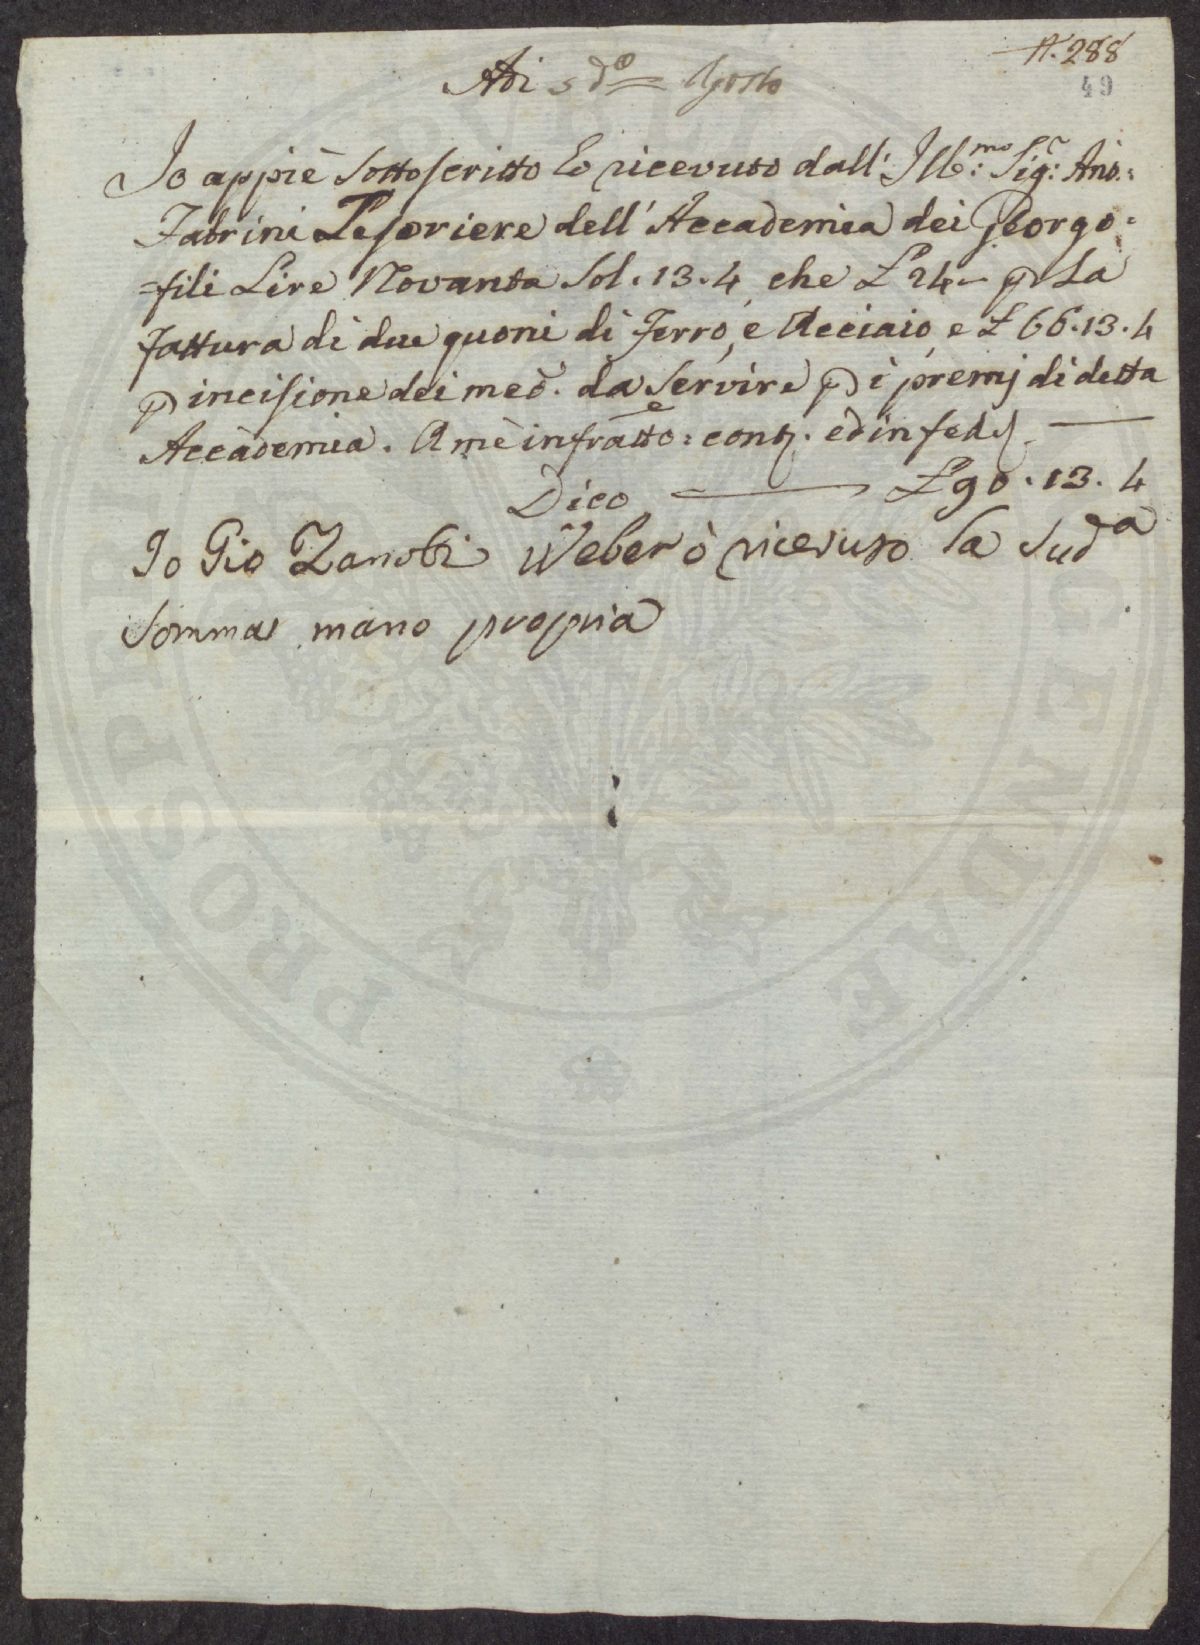 A. 288
49
Adi 5 d.o Agosto
Io appiè Sottoscritto ho ricevuto dall' Ill:mo Sig:r Ant.:
Fabrini Tesoriere dell' Accademia dei Georgo=
=fili Lire Novanta Sol. 13. 4 che £ 24 - p la
fattura di due quoni di Ferro, e Acciaio, e £ 66. 13. 4
p incisione dei med. da Servire p i premj di detta
Accademia. A me infratto: cont. ed in fede
Dico £ 90. 13. 4
Io Gio Zanobi Weber ò ricevuto la Sud.a
Somma mano propria
PROSPERITATI PUBLICAE AUGENDAE